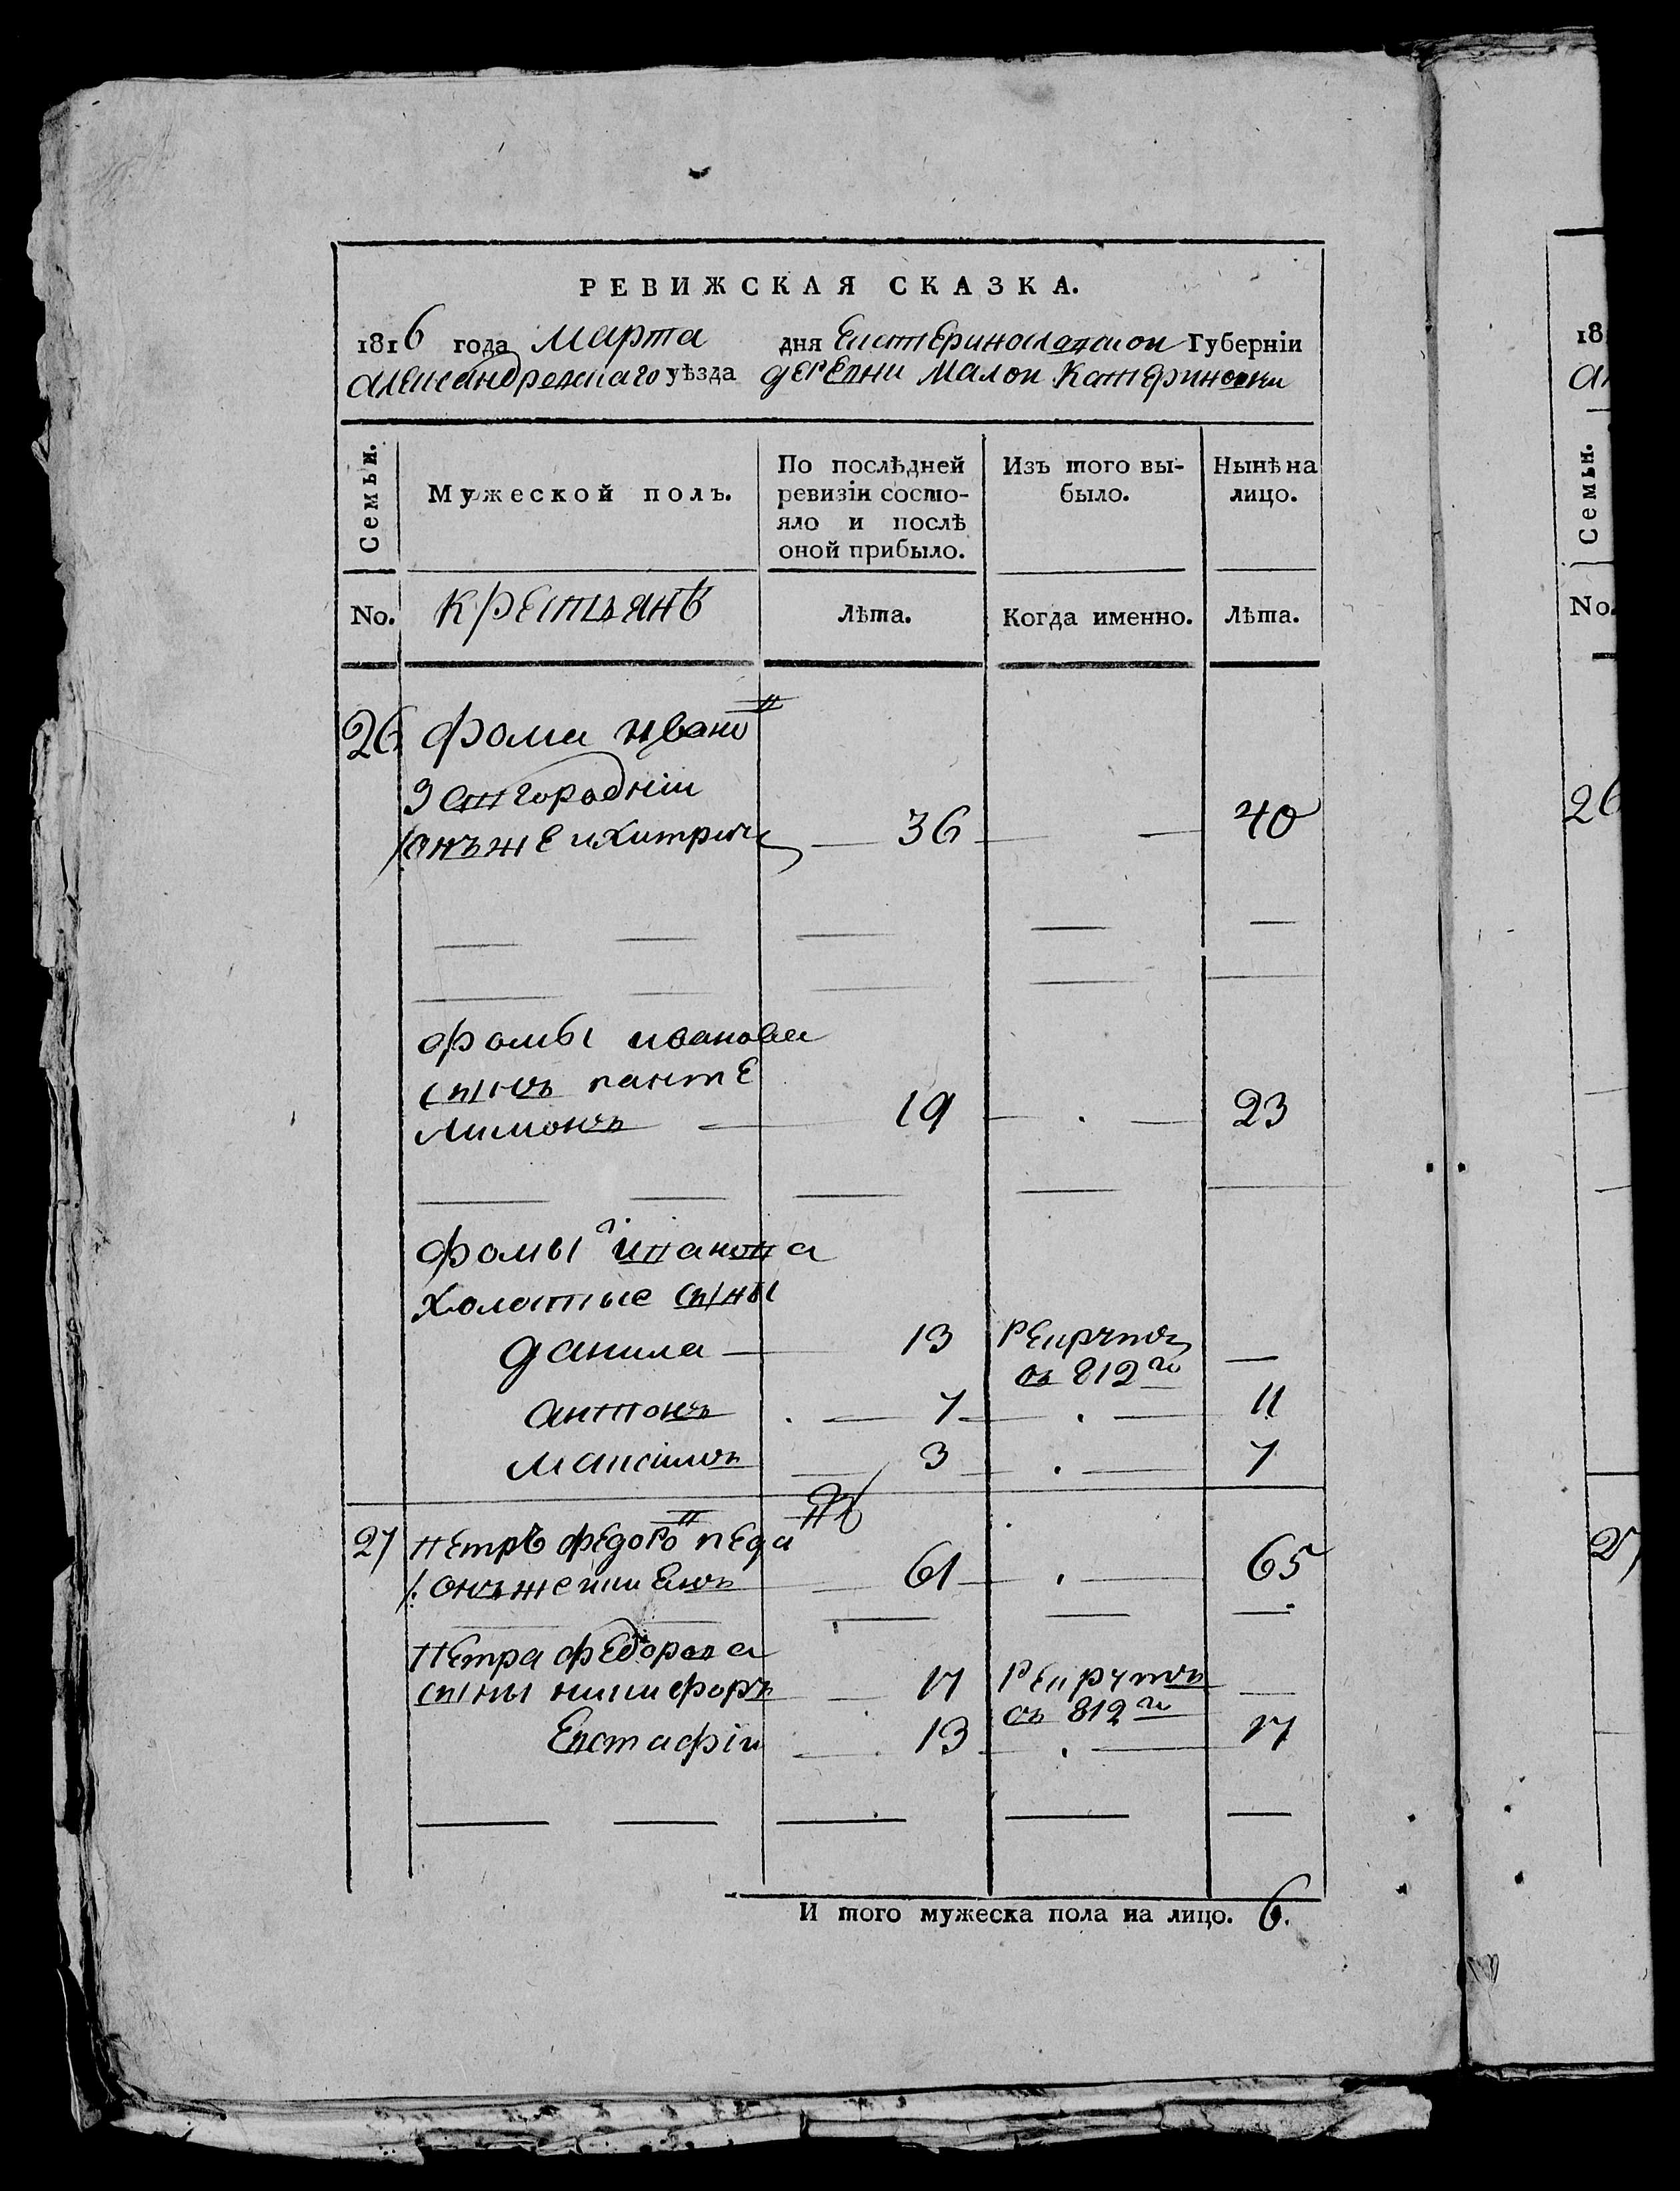 РЕВИЖСКАЯ СКАЗКА.
1816 года Марта дня Екатеринославской Губерніи
Александровскаго уѣзда деревни Малой Катериновки
Семьи.
Мужеской полъ.
По послѣдней ревизіи состояло и послѣ оной прибыло.
Изъ того выбыло.
Нынѣ на лицо.
No. крестьянѣ Лѣта. Когда именно. Лѣта.
26 Фома Ивановъ
Завгородній
/онъже и Хитричъ 36 40
Фомы Иванова
сынъ Панте
лимонъ 19 23
Фомы Иванова
холатые сыны
Данила 13 Рекрутъ
въ 812го
Антонъ 7 11
Максимъ 3 7
27 Петръ Федоровъ
/: онъже 61 65
Петра Федорова
сыны Никифоръ 17 Рекрутъ
въ 812го
Евстафій 13 17
И того мужеска пола на лицо. 6.
18
No.
Семьи.
26
27